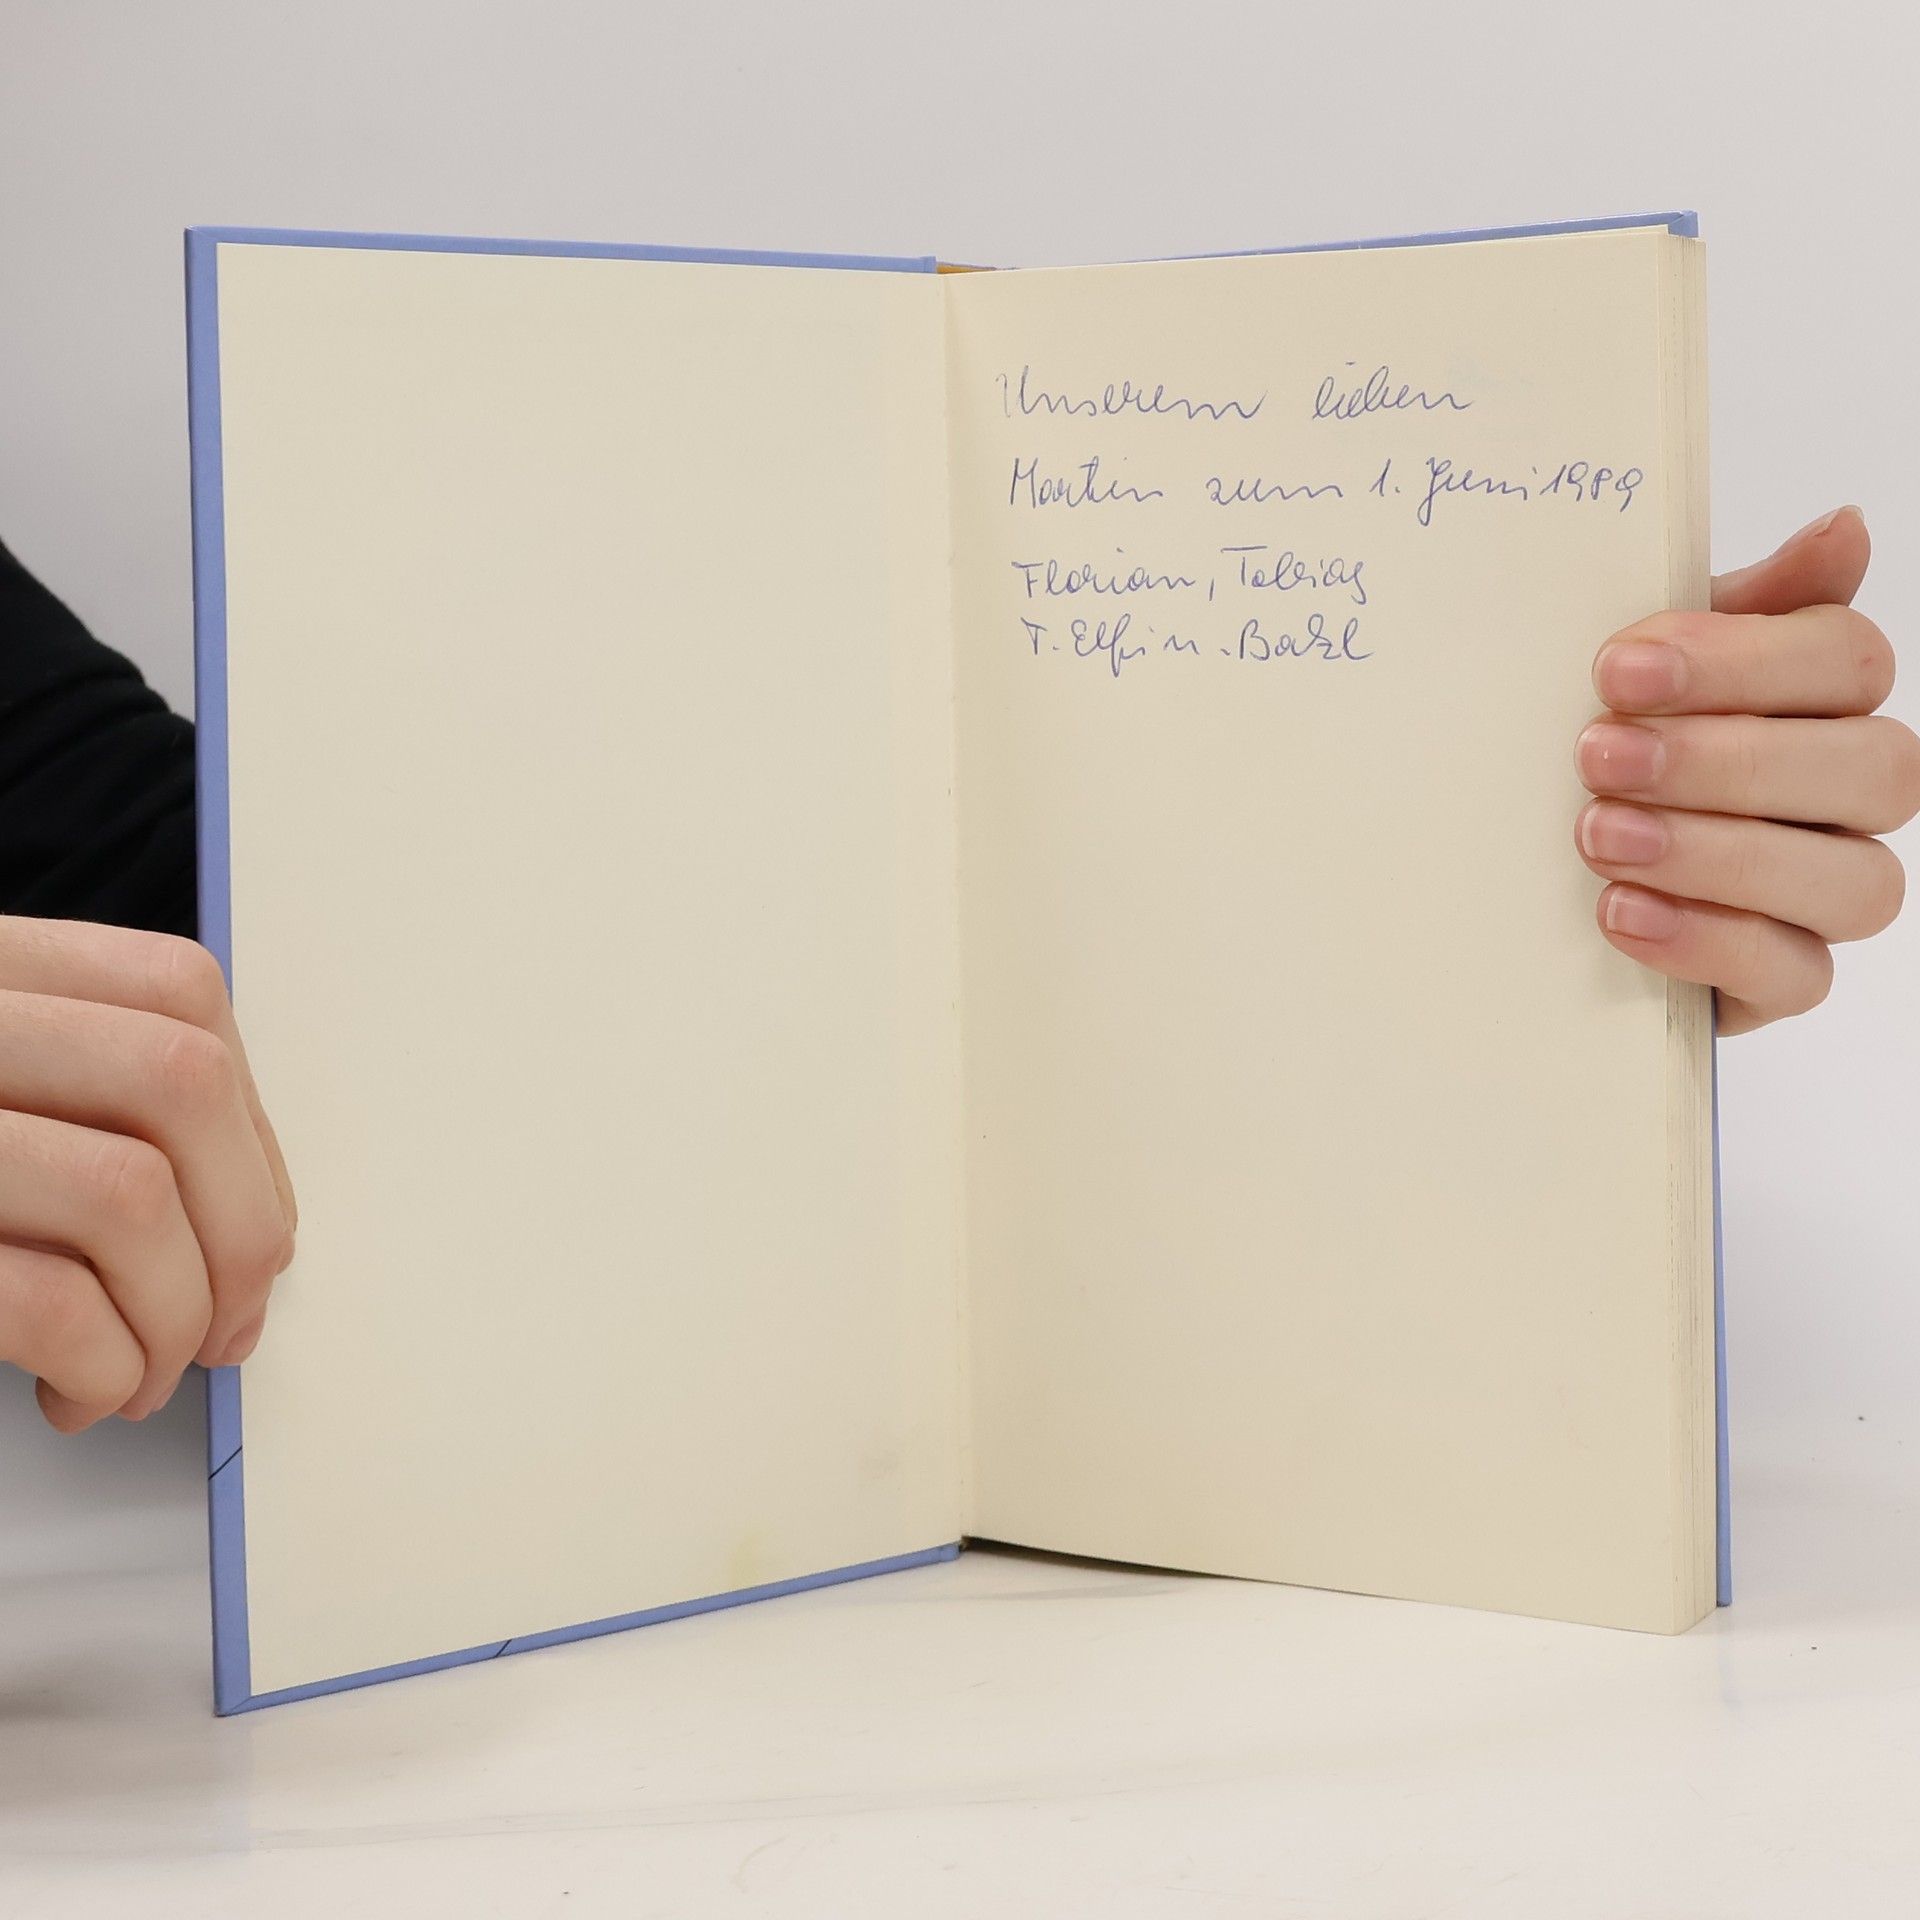 Unserem lieben
Martin zum 1. Juni 1989
Florian, Tobias
T. Elfi u.